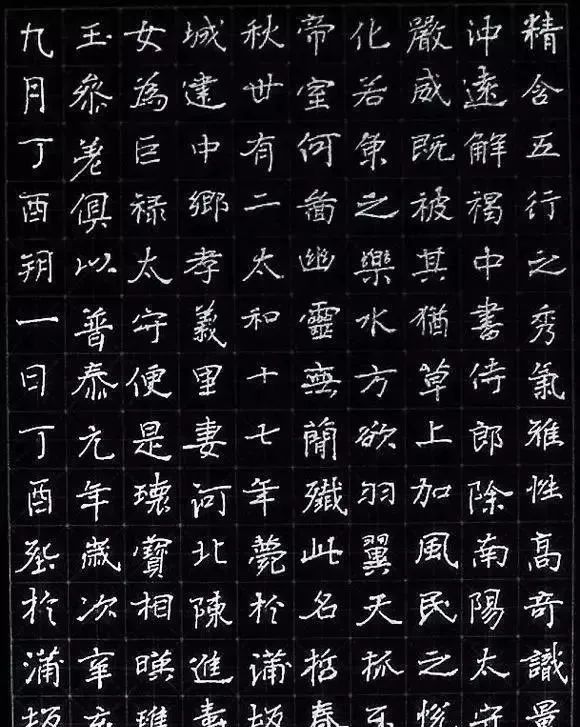 精含五行之秀氣雅性高奇識量
沖遠解褐中書侍郎除南陽太守
嚴威既被其猶草上加風民之悅
化若魚之樂水方欲羽翼天抓
帝室何啚幽靈無簡殲此名哲春
秋世有二太和十七年薨於蒲坂
城建中鄉孝義里妻河北陳進壽
女為巨祿太守便是瓌寶相暎
玉叅差俱以普泰元年歲次辛亥
九月丁酉朔一日丁酉葬於蒲坂